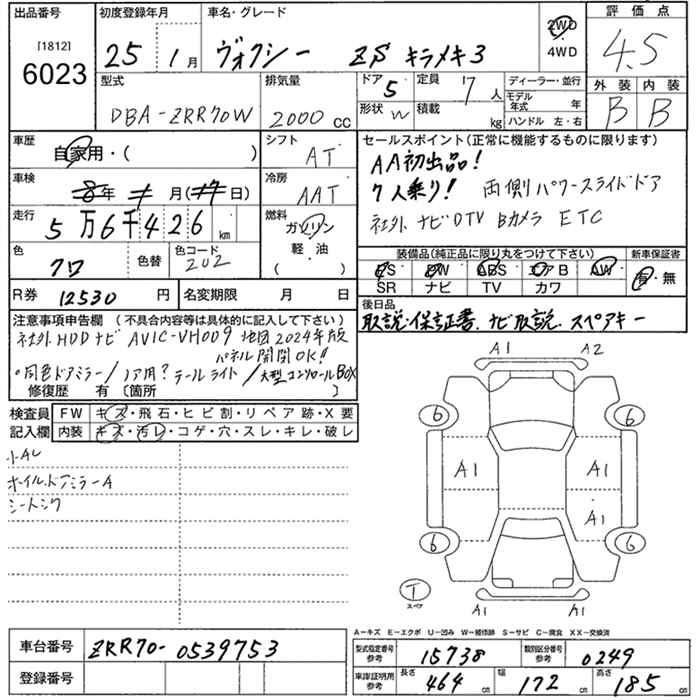 出品番号 初度登録年月 車名・グレード 評価点
[1812] 6023
25 1月 ヴォクシー ZS キラメキ3 2WD 4WD 4.5
型式 排気量 ドア 5 定員 7人 ディーラー・並行 外装 内装
DBA-ZRR70W 2000cc 形状 W 積載 kg モデル年式 年 ハンドル 左・右 B B
車歴 自家用・( ) シフト AT
セールスポイント(正常に機能するものに限ります)
AA初出品!
7人乗り! 両側パワースライドドア
社外ナビDTV Bカメラ ETC
車検 年 月( 日) 冷房 AAT
走行 5万6千426km 燃料 ガソリン 軽・油 ( )
色 クロ 色替 色コード 202
装備品(純正品に限り丸をつけて下さい) 新車保証書
PS PW ABS エアB AW 有・無
SR ナビ TV カワ
R券 12530円 名変期限 月 日
後日品
取説・保証書、ナビ取説、スペアキー
注意事項申告欄(不具合内容等は具体的に記入して下さい)
社外HDDナビ AVIC-VH009 地図2024年版
パネル開閉OK!!
・同色ドアミラー/ テールライト/大型コンソールBOX
修復歴 有 〔箇所 〕
検査員記入欄 FW キズ・飛石・ヒビ割・リペア跡・X要
内装 キズ・汚レ・コゲ・穴・スレ・キレ・破レ
ホイル.ドアミラーA
シートシワ
A1 A2
6 6
A1 A1
A1
6 6
T スペア
A1 A1
A-キズ E-エクボ U-凹み W-補修跡 S-サビ C-腐食 XX-交換済
車台番号 ZRR70-0539753
登録番号
型式指定番号 参考 15738 類別区分番号 参考 0249
車庫証明用 参考 長さ 464cm 幅 172cm 高さ 185cm